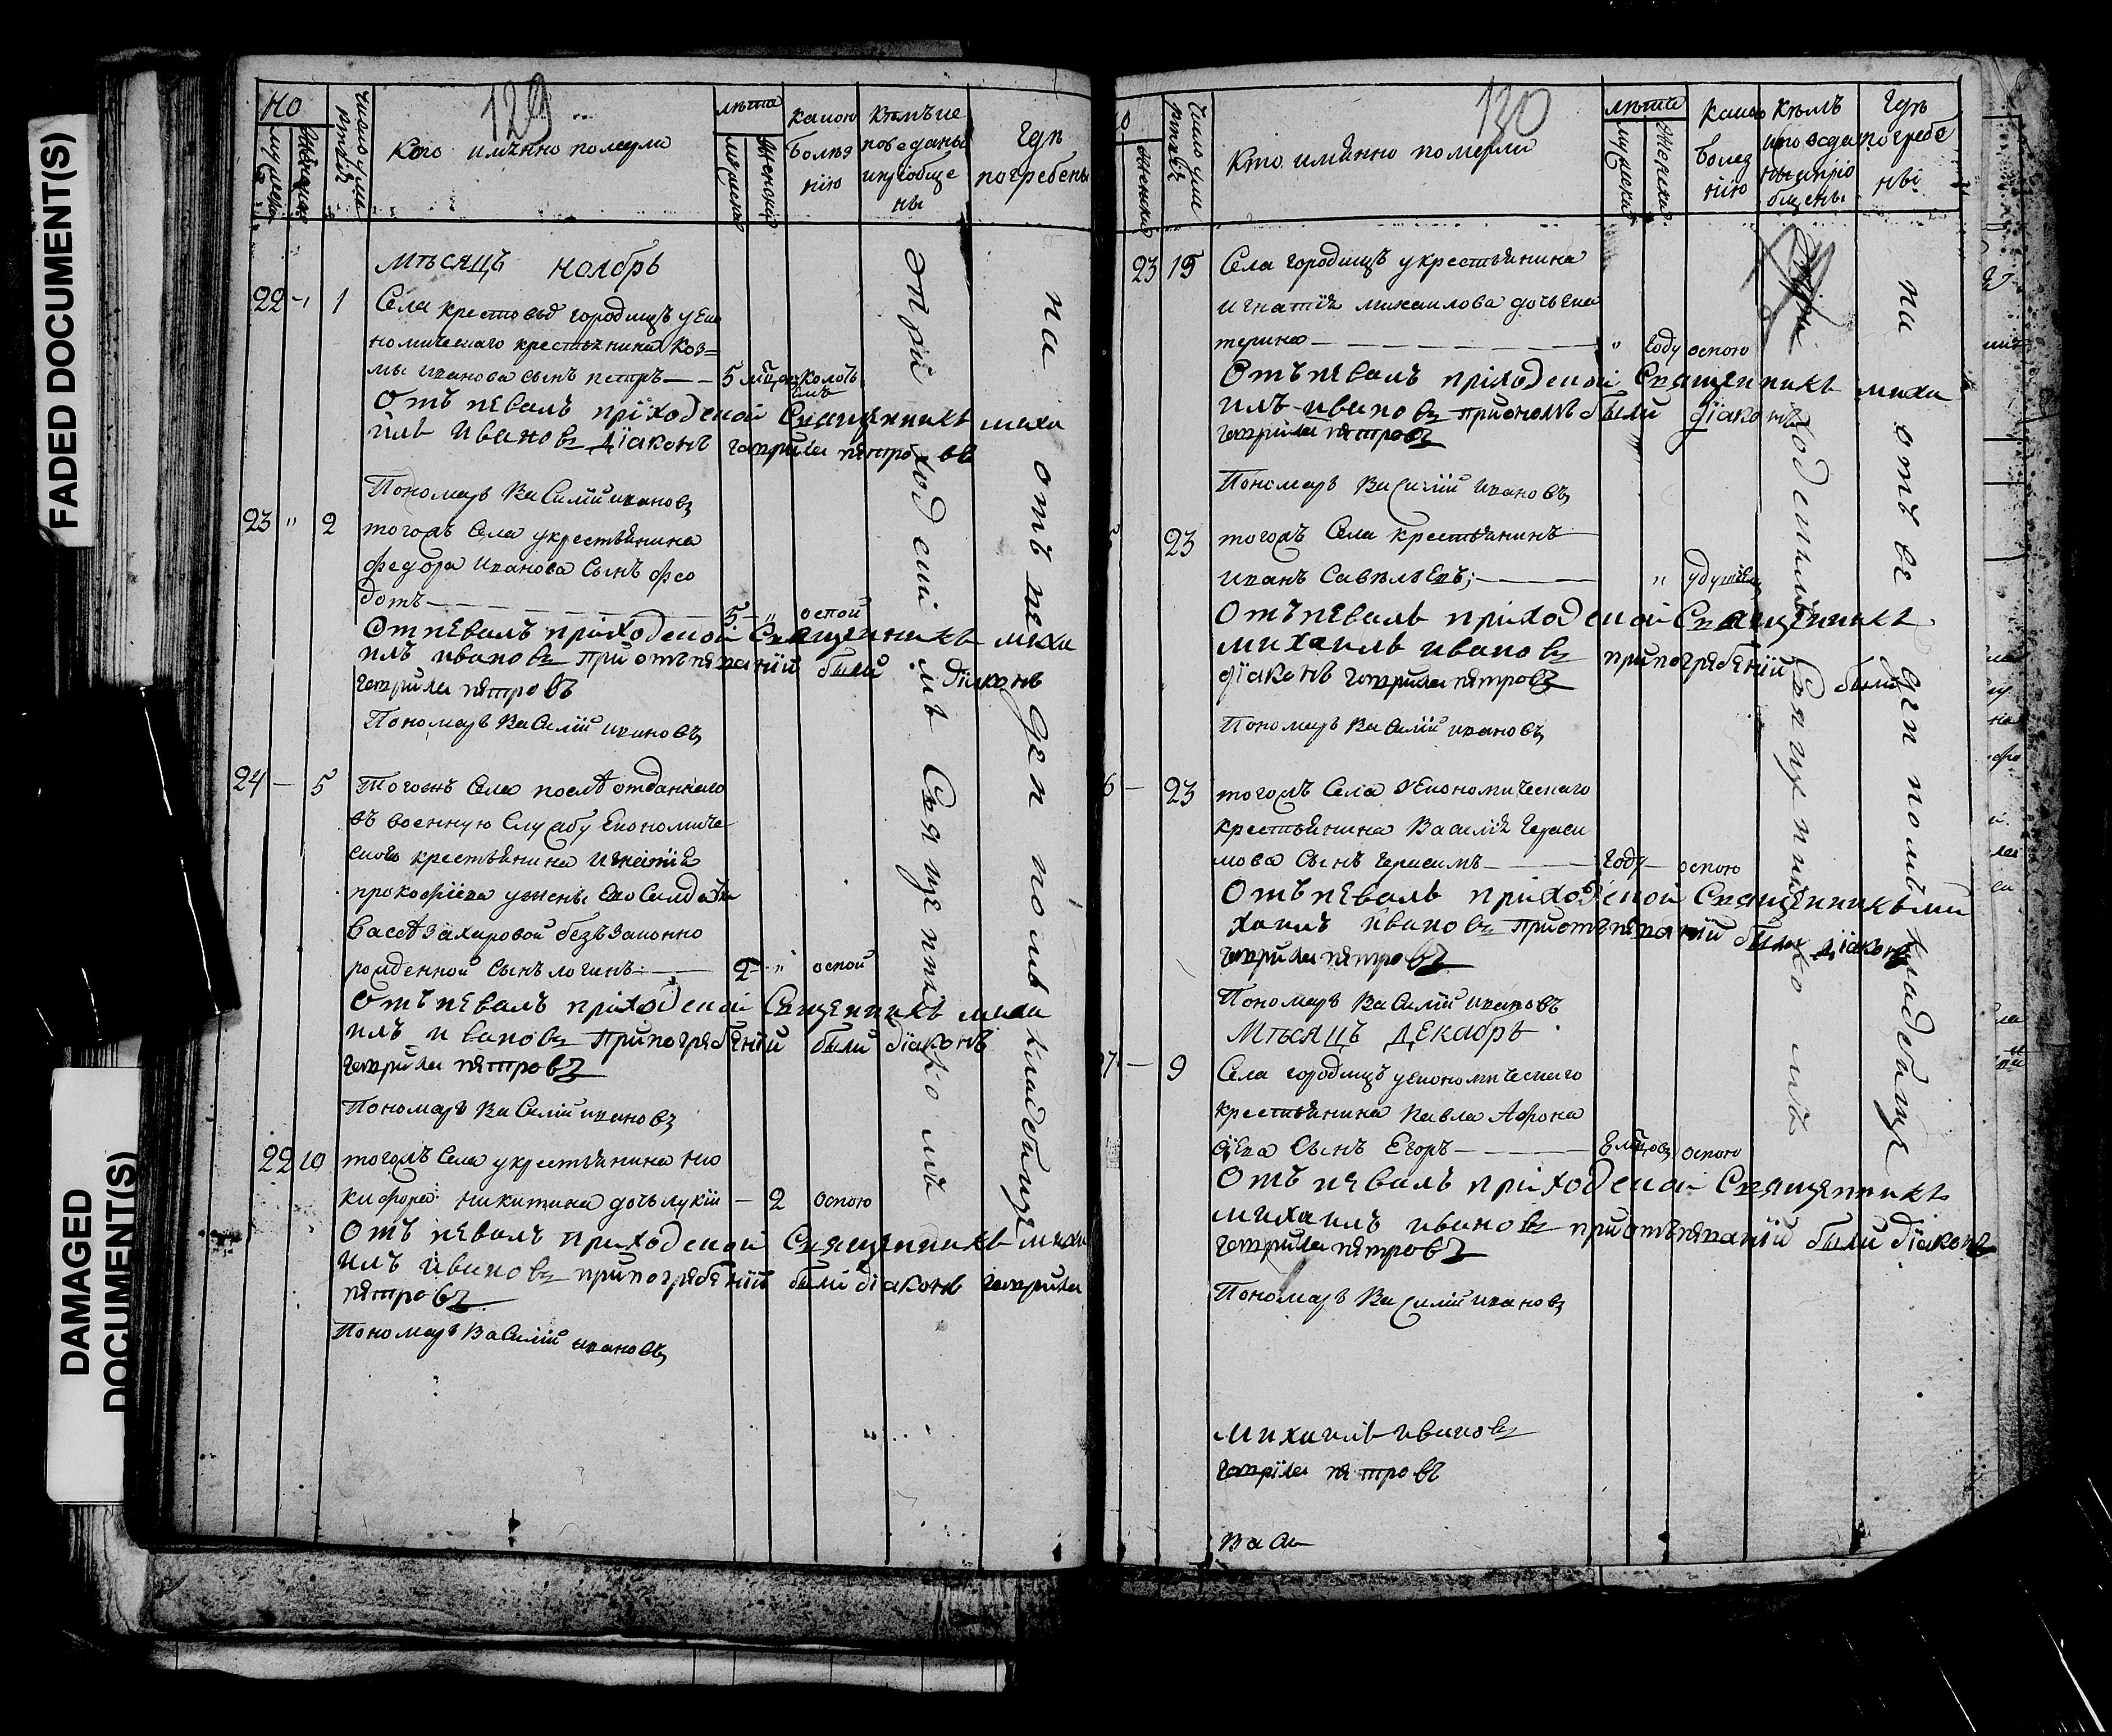 FADED DOCUMENT(S)
DAMAGED DOCUMENT(S)
129
но
мужеска
женска
число умер
Кто имѣнно померли
лѣта
мужеска
женска
какою болѣзнію
кѣмъ исповеданы и приобщены
гдѣ погребены
мѣсяцъ ноябрь
22 1 Села крестовыхъ городищъ уеко
номическаго крестьянина Коз=
мы иванова сынъ петръ 5 мѣ колотьемъ
Отъ певалъ приходской Священникъ миха
илъ Ивановъ діаконъ гаврила петровъ
Пономарь Василій ивановъ
23 " 2 тогожъ Села укрестьянина
федора иванова Сынъ фео
дотъ 5 " оспой
Отпевалъ приходской Священникъ миха
илъ ивановъ при отъпевании были діаконъ
гаврила петровъ
Пономарь Василій ивановъ
24 5 Тогожъ Села послѣ отданнаго
въ военную Службу Економиче
скаго крестьянина игнатія
прокофіева ужены Его Салдатки
Васѣ Захаровой безъзаконно
рожденной Сынъ логинъ 2 " оспой
Отъ певалъ приходской Священникъ миха
илъ ивановъ При погребении были діаконъ
гаврила петровъ
Пономарь Василій ивановъ
22 10 тогожъ Села укрестьянина ни
кифора никитина дочь лукия 2 оспою
Отъ певалъ приходской Священникъ миха
илъ ивановъ при погребении были діаконъ гаврила
петровъ
Пономарь Василій ивановъ
приходскимъ Священникомъ
на отведенномъ кладбище
130
женска
число умер
Кто имѣнно померли
лѣта
мужеска
женска
какою болезнію
кѣмъ исповеданы и приобщены
гдѣ погребены
23 15 Села городищъ укрестьянина
игнатія михаилова дочь ека
терина " году оспою
Отъпевалъ приходской Священникъ миха
илъ ивановъ при ономъ были діаконъ
гаврила петровъ
Пономарь Василій ивановъ
23 тогожъ Села крестьянинъ
иванъ Савельевъ; "
Отъпевалъ приходской Священникъ
михаилъ ивановъ при погребении были
діаконъ гаврила петровъ
Пономарь Василій ивановъ
6 23 тогожъ Села уЕкономическаго
крестьянина Василія гераси
мова Сынъ герасимъ году оспою
Отъпевалъ приходской Священникъ ми
хаилъ ивановъ при отъпевании были діаконъ
гаврила петровъ
Пономарь Василій ивановъ
Мѣсяцъ декабрь
7 9 Села городищъ уекономическаго
крестьянина павла Афона
сіева Сынъ Егоръ оспою
Отъ певалъ приходской Священникъ
михаилъ ивановъ при отъпевании были діаконъ
гаврила петровъ
Пономарь Василій ивановъ
михаилъ ивановъ
гаврила петровъ
Васи
приходскимъ Священникомъ
на отведенномъ кладбище